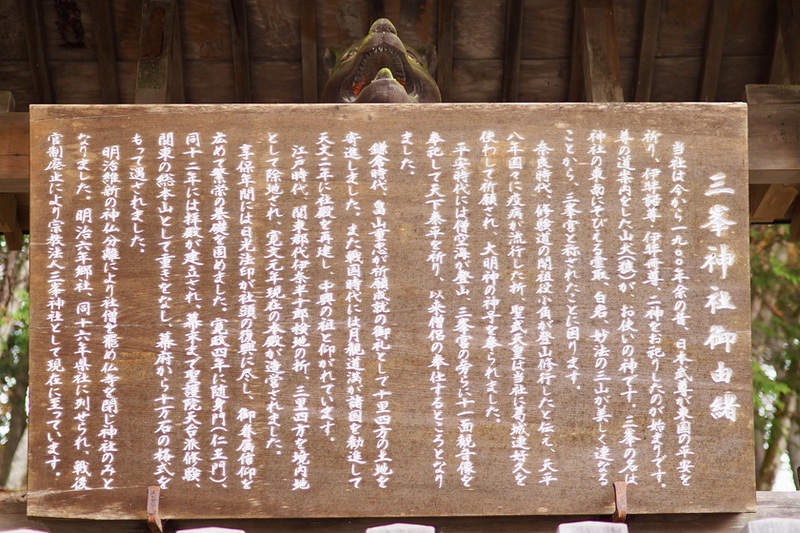 三峯神社御由緒
当社は今から一九〇〇年余の昔、日本武尊が東国の平安を
祈り、伊弉諾尊 伊弉册尊 二神をお祀りしたのが始まりです。
尊の道案内をした山犬(狼)が、お使いの神です。三峯の名は
神社の東南にそびえる雲取、白岩、妙法の三山が美しく連なる
ことから、三峯宮と称されたことに因ります。
奈良時代、修験道の開祖役小角が登山修行したと伝え、天平
八年国々に疫病が流行した折、聖武天皇は当社に葛城連好久を
使わして祈願され、大明神の神号を奉られました。
平安時代には僧空海が登山、三峯宮の傍らに十一面観音像を
奉祀して天下泰平を祈り、以来僧侶の奉仕するところとなり
ました。
鎌倉時代、畠山重忠が祈願成就の御礼として十里四方の土地を
寄進しました。また戦国時代には月観道満が諸国を勧進して
天文二年に社殿を再建し、中興の祖と仰がれています。
江戸時代、関東郡代伊奈半十郎検地の折、三里四方を境内地
として除地され、寛文元年現在の本殿が造営されました。
享保年間には日光法印が社頭の復興に尽し、御眷属信仰を
広めて繁栄の基礎を固めました。寛政四年に随身門(仁王門)、
同十二年には拝殿が建立され、幕末まで聖護院天台派修験、
関東の総本山として重きをなし、幕府から十万石の格式を
もって遇されました。
明治維新の神仏分離により社僧を廃め仏寺を閉じ神社のみと
なりました。明治六年郷社、同十六年県社に列せられ、戦後
官制廃止により宗教法人三峯神社として現在に至っています。